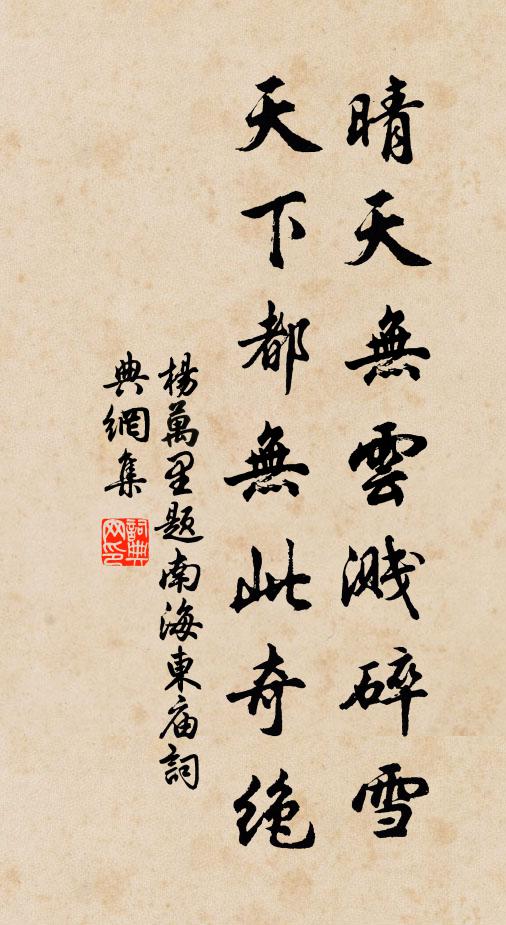 晴天無雲濺碎雪
天下都無此奇絶
楊萬里題南海東庙詞
典網集
詞典网印